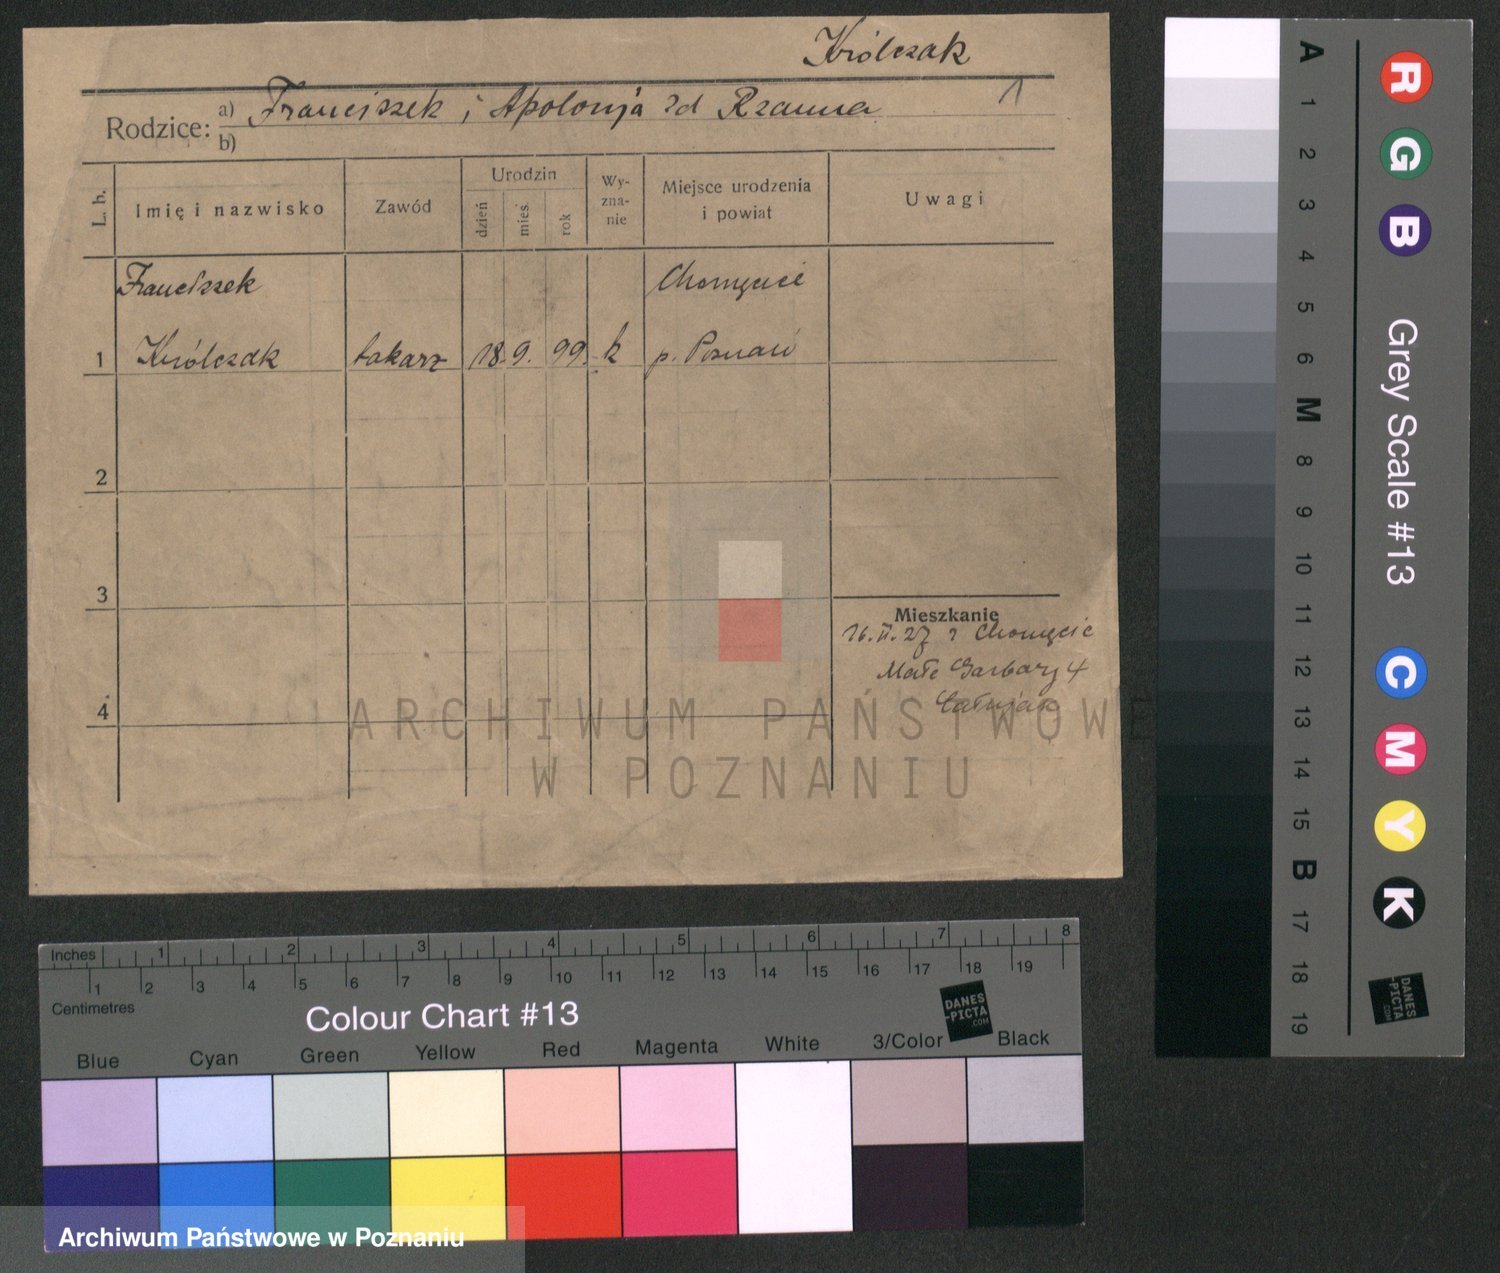 Królczak
1
Rodzice: a) Franciszek i Apolonja zd Rzanna
b)
L. h.
Imię i nazwisko
Zawód
Urodzin
dzień
mies.
rok
Wy-
zna-
nie
Miejsce urodzenia
i powiat
Uwagi
Franciszek
Chomęcice
1 Królczak tokarz 18. 9. 99. k p. Poznań
2
3
4
Mieszkanie
16.II.27 z Chomęcic
Małe Garbary 4
ARCHIWUM PAŃSTWOWE
W POZNANIU
Inches 1 2 3 4 5 6 7 8
1 2 3 4 5 6 7 8 9 10 11 12 13 14 15 16 17 18 19
Centimetres
Colour Chart #13
DANES
-PICTA
.COM
Blue Cyan Green Yellow Red Magenta White 3/Color Black
Archiwum Państwowe w Poznaniu
A 1 2 3 4 5 6 M 8 9 10 11 12 13 14 15 B 17 18 19
R G B
Grey Scale #13
C M Y K
DANES
-PICTA
.COM